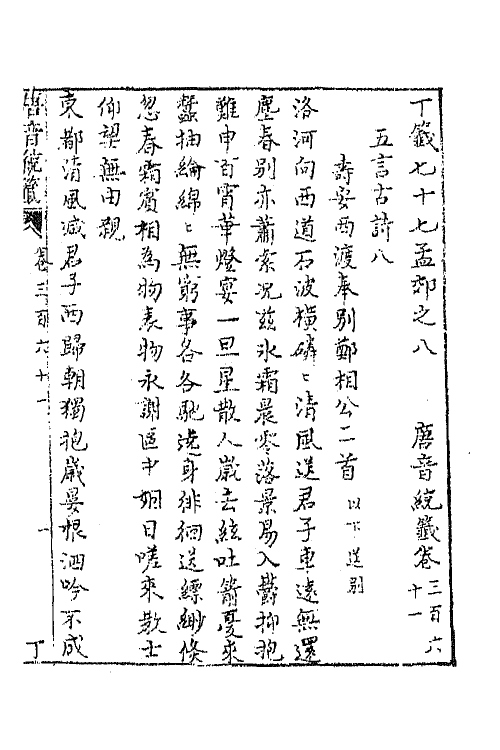 丁籤七十七孟郊之八 唐音統籤卷三百六十一
五言古詩八
壽安西渡奉別鄭相公二首 以下送別
洛河向西道石波橫磷〻清風送君子車遠無還
塵春別亦蕭索況玆冰霜晨零落景易入鬱抑抱
難申百宵華燈宴一旦星散人歲去絃吐箭憂來
蠶抽綸綿〻無窮事各各馳遶身徘徊送縹緲倏
忽春霜賓相爲物表物永謝區中姻日嗟來教士
仰望無由親
東都清風减君子西歸朝獨抱歲晏恨泗吟不成
唐音統籤 卷三百六十一 一 丁